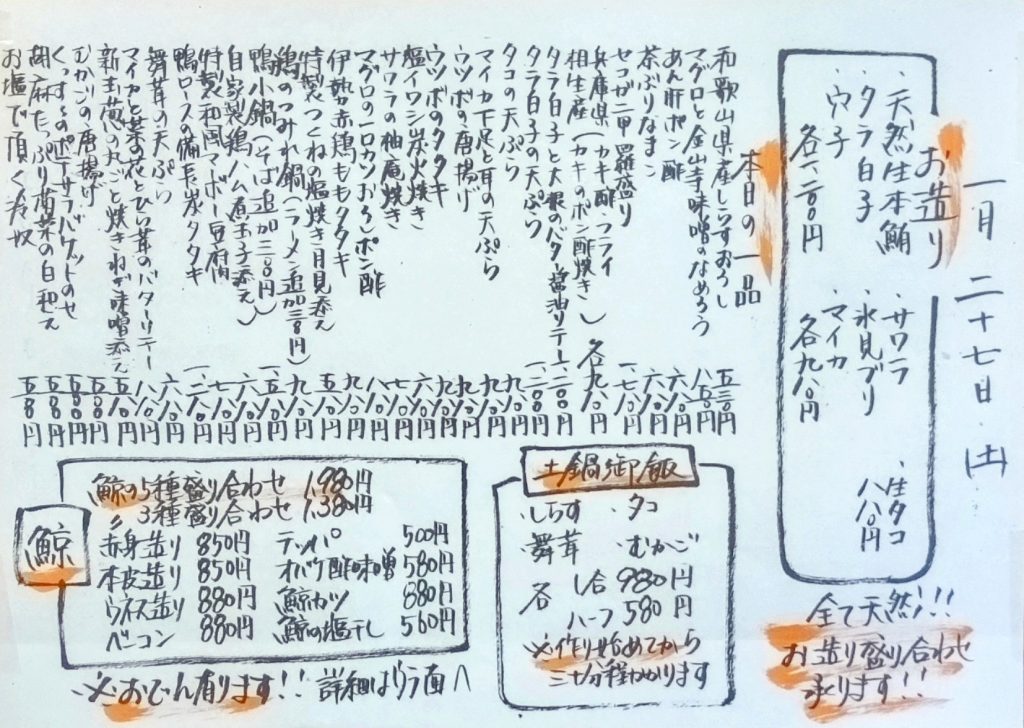 一月二十七日(土)
お造り
・天然生本鮪
・タラ白子
・穴子
各一、二〇〇円
・サワラ
・氷見ブリ
・マイカ
各九八〇円
・生タコ
八八〇円
全て天然!!!
お造り盛り合わせ
承ります!!
本日の一品
和歌山県産しらすおろし 五三〇円
マグロと金山寺味噌のなめろう 八五〇円
あん肝ポン酢
茶ぶりなまこ 六八〇円
セコガニ甲羅盛り 一、七八〇円
兵庫県(カキ酢・フライ
相生産(カキのポン酢焼き) 各九八〇円
タラ白子と大根のバター醤油ソテー 一、二〇〇円
タラ白子の天ぷら 一、二〇〇円
タコの天ぷら 九八〇円
マイカ下足と耳の天ぷら
ウツボの唐揚げ 九八〇円
ウツボのタタキ 九八〇円
塩イワシ炭火焼き 六八〇円
サワラの柚庵焼き 七八〇円
マグロの一口カツおろしポン酢 八八〇円
伊勢赤鶏ももタタキ 九八〇円
特製つくねの塩焼き月見添え 五八〇円
鶏のつみれ鍋(ラーメン追加三八〇円) 九八〇円
鴨小鍋(そば追加三八〇円) 一、五八〇円
自家製鶏ハム煮玉子添え 六八〇円
特製和風マーボー豆腐 七八〇円
鴨ロースの備長炭タタキ 一、二八〇円
舞茸の天ぷら 六八〇円
マイカと菜の花とひら茸のバターソテー 八八〇円
新玉葱の丸ごと焼きねぎ味噌添え 五八〇円
むかごの唐揚げ 五五〇円
胡麻たっぷり菊菜の白和え 五八〇円
お塩で頂く冷奴 五八〇円
土鍋御飯
・しらす ・タコ
・舞茸 ・むかご
各 1合 980円
ハーフ 580円
※作り始めてから
三十分程かかります
鯨
鯨の5種盛り合わせ 1,980円
〃 3種盛り合わせ 1,380円
赤身造り 850円 テッパ 500円
本皮造り 850円 オバケ酢味噌 580円
ウネス造り 880円 鯨カツ 880円
ベーコン 880円 鯨の塩干し 560円
※おでん有ります!! 詳細はウラ面へ